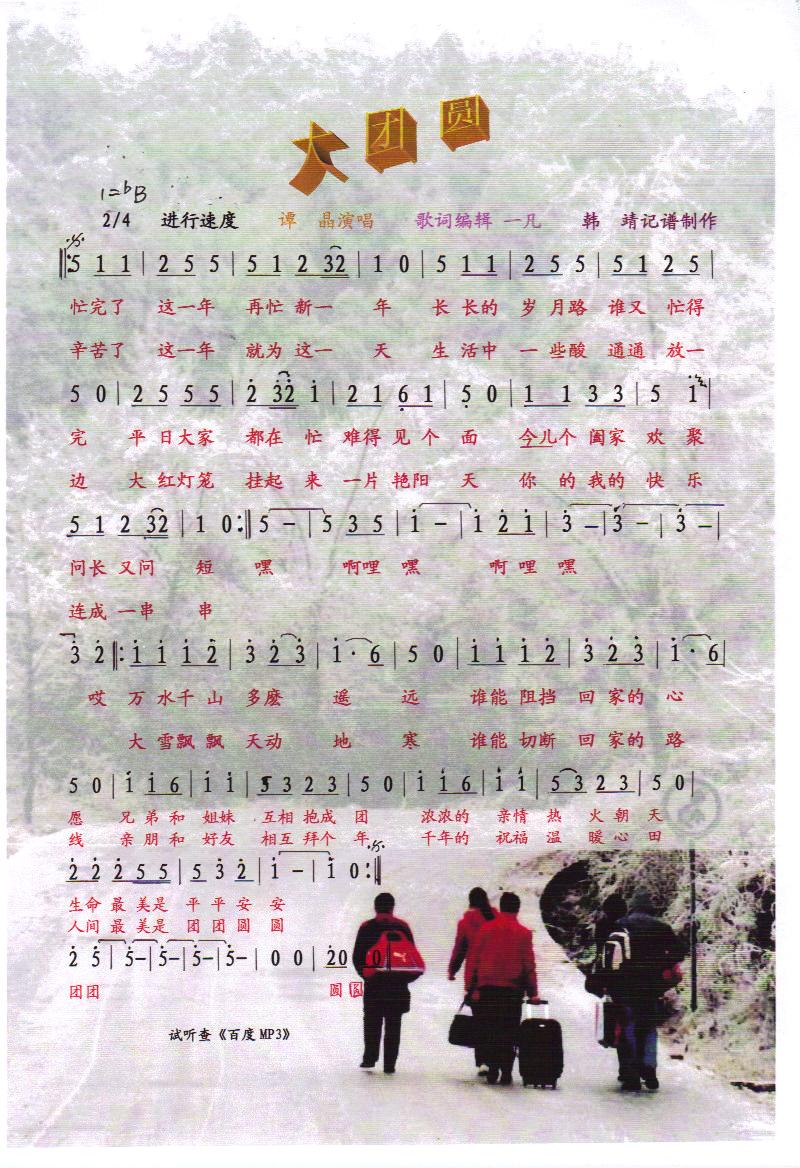 大团圆
1=bB
2/4 进行速度 谭 晶演唱 歌词编辑 一凡 韩 靖记谱制作
5 1 1 | 2 5 5 | 5 1 2 32 | 1 0 | 5 1 1 | 2 5 5 | 5 1 2 5 |
忙完了 这一年 再忙 新一 年 长 长的 岁 月路 谁又 忙得
辛苦了 这一年 就为 这一 天 生 活中 一 些酸 通通 放一
5 0 | 2 5 5 5 | 2 32 1 | 2 1 6 1 | 5 0 | 1 1 3 3 | 5 1 |
完 平 日大家 都在 忙 难得 见 个 面 今儿个 阖家 欢 聚
边 大 红灯笼 挂起 来 一片 艳阳 天 你 的 我的 快 乐
5 1 2 32 | 1 0 :|| 5 – | 5 3 5 | 1 – | 1 2 1 | 3 – | 3 – | 3 – |
问长 又问 短 嘿 啊哩 嘿 啊 哩 嘿
连成 一串 串
3 2 ||: 1 1 1 2 | 3 2 3 | 1 · 6 | 5 0 | 1 1 1 2 | 3 2 3 | 1 · 6 |
哎 万 水千 山 多麽 遥 远 谁能 阻挡 回 家的 心
大 雪飘飘 天动 地 寒 谁能 切断 回 家的 路
5 0 | 1 1 6 | 1 1 | 5 3 2 3 | 5 0 | 1 1 6 | 1 1 | 5 3 2 3 | 5 0 |
愿 兄 弟 和 姐妹 互相 抱成 团 浓浓的 亲情 热 火 朝 天
线 亲 朋 和 好友 相互 拜个 年 千年的 祝福 温 暖 心 田
2 2 2 5 5 | 5 3 2 | 1 – | 1 0 :||
生命 最 美是 平 平 安 安
人间 最 美是 团 团 圆 圆
2 5 | 5– | 5– | 5– | 5– | 0 0 | 20 0
团团 圆 圆
试听查《百度 MP3》